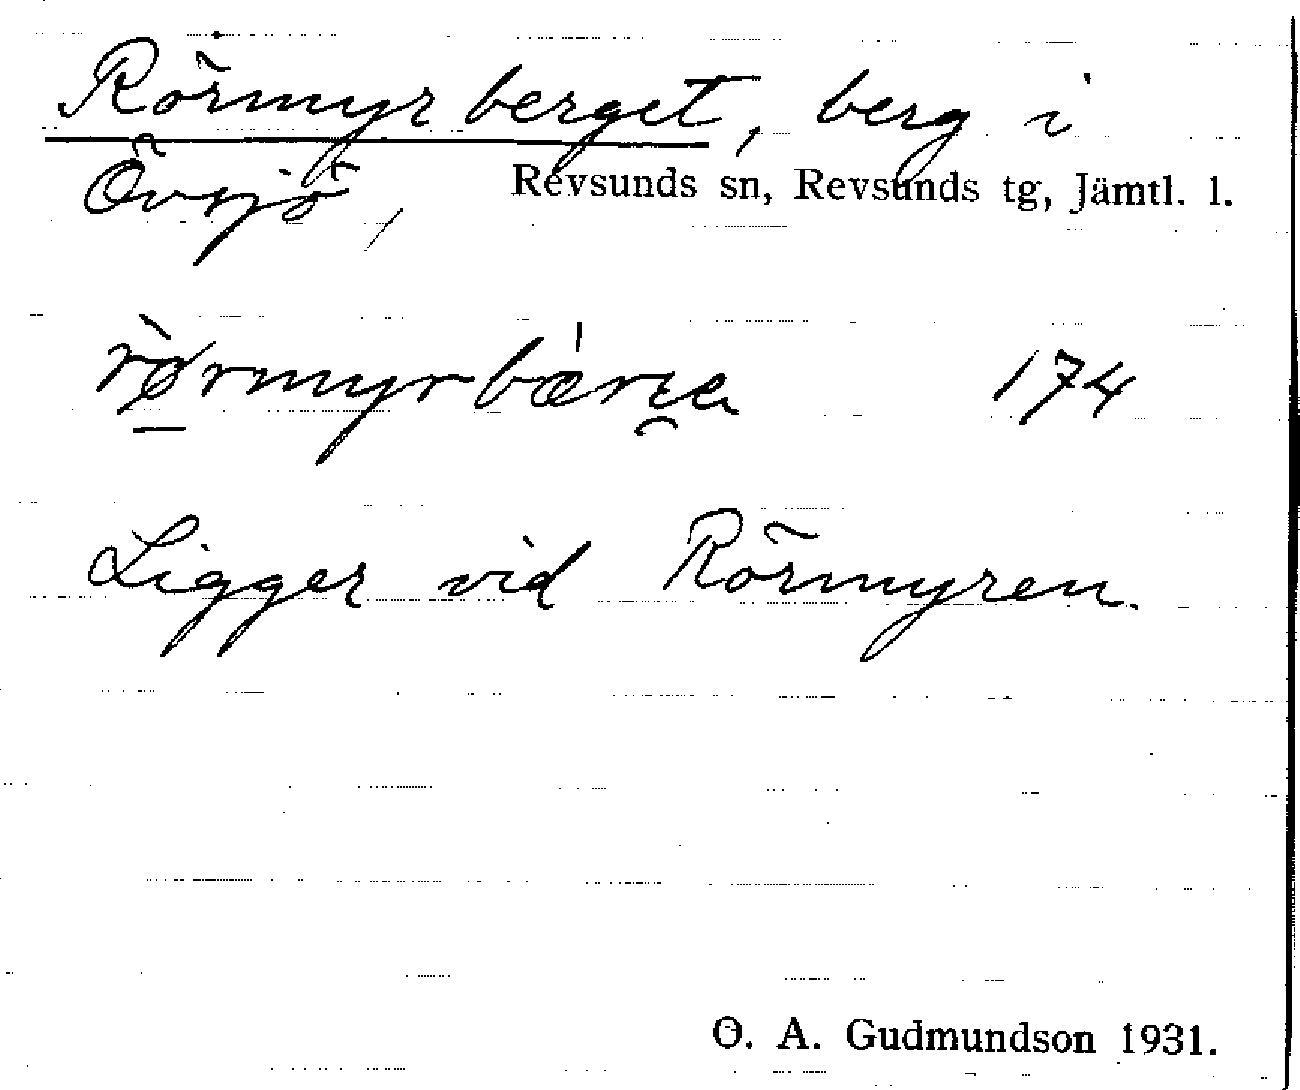 Rörmyrberget, berg i
Övsjö, Revsunds sn, Revsunds tg, Jämtl. l.
174
Ligger vid Rörmyren.
O. A. Gudmundson 1931.